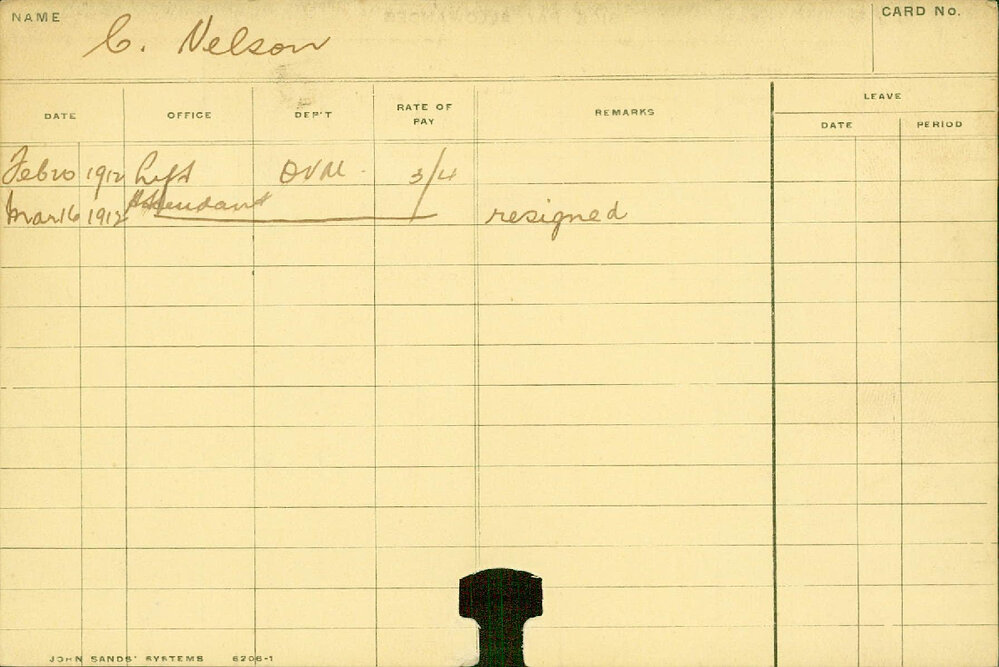 NAME
C. Nelson
CARD No.
DATE OFFICE DEP'T RATE OF PAY REMARKS LEAVE
DATE PERIOD
Feb 20 1912 Lift 3/4
Mar 16 1912 Attendant resigned
JOHN SANDS' SYSTEMS 6206-1